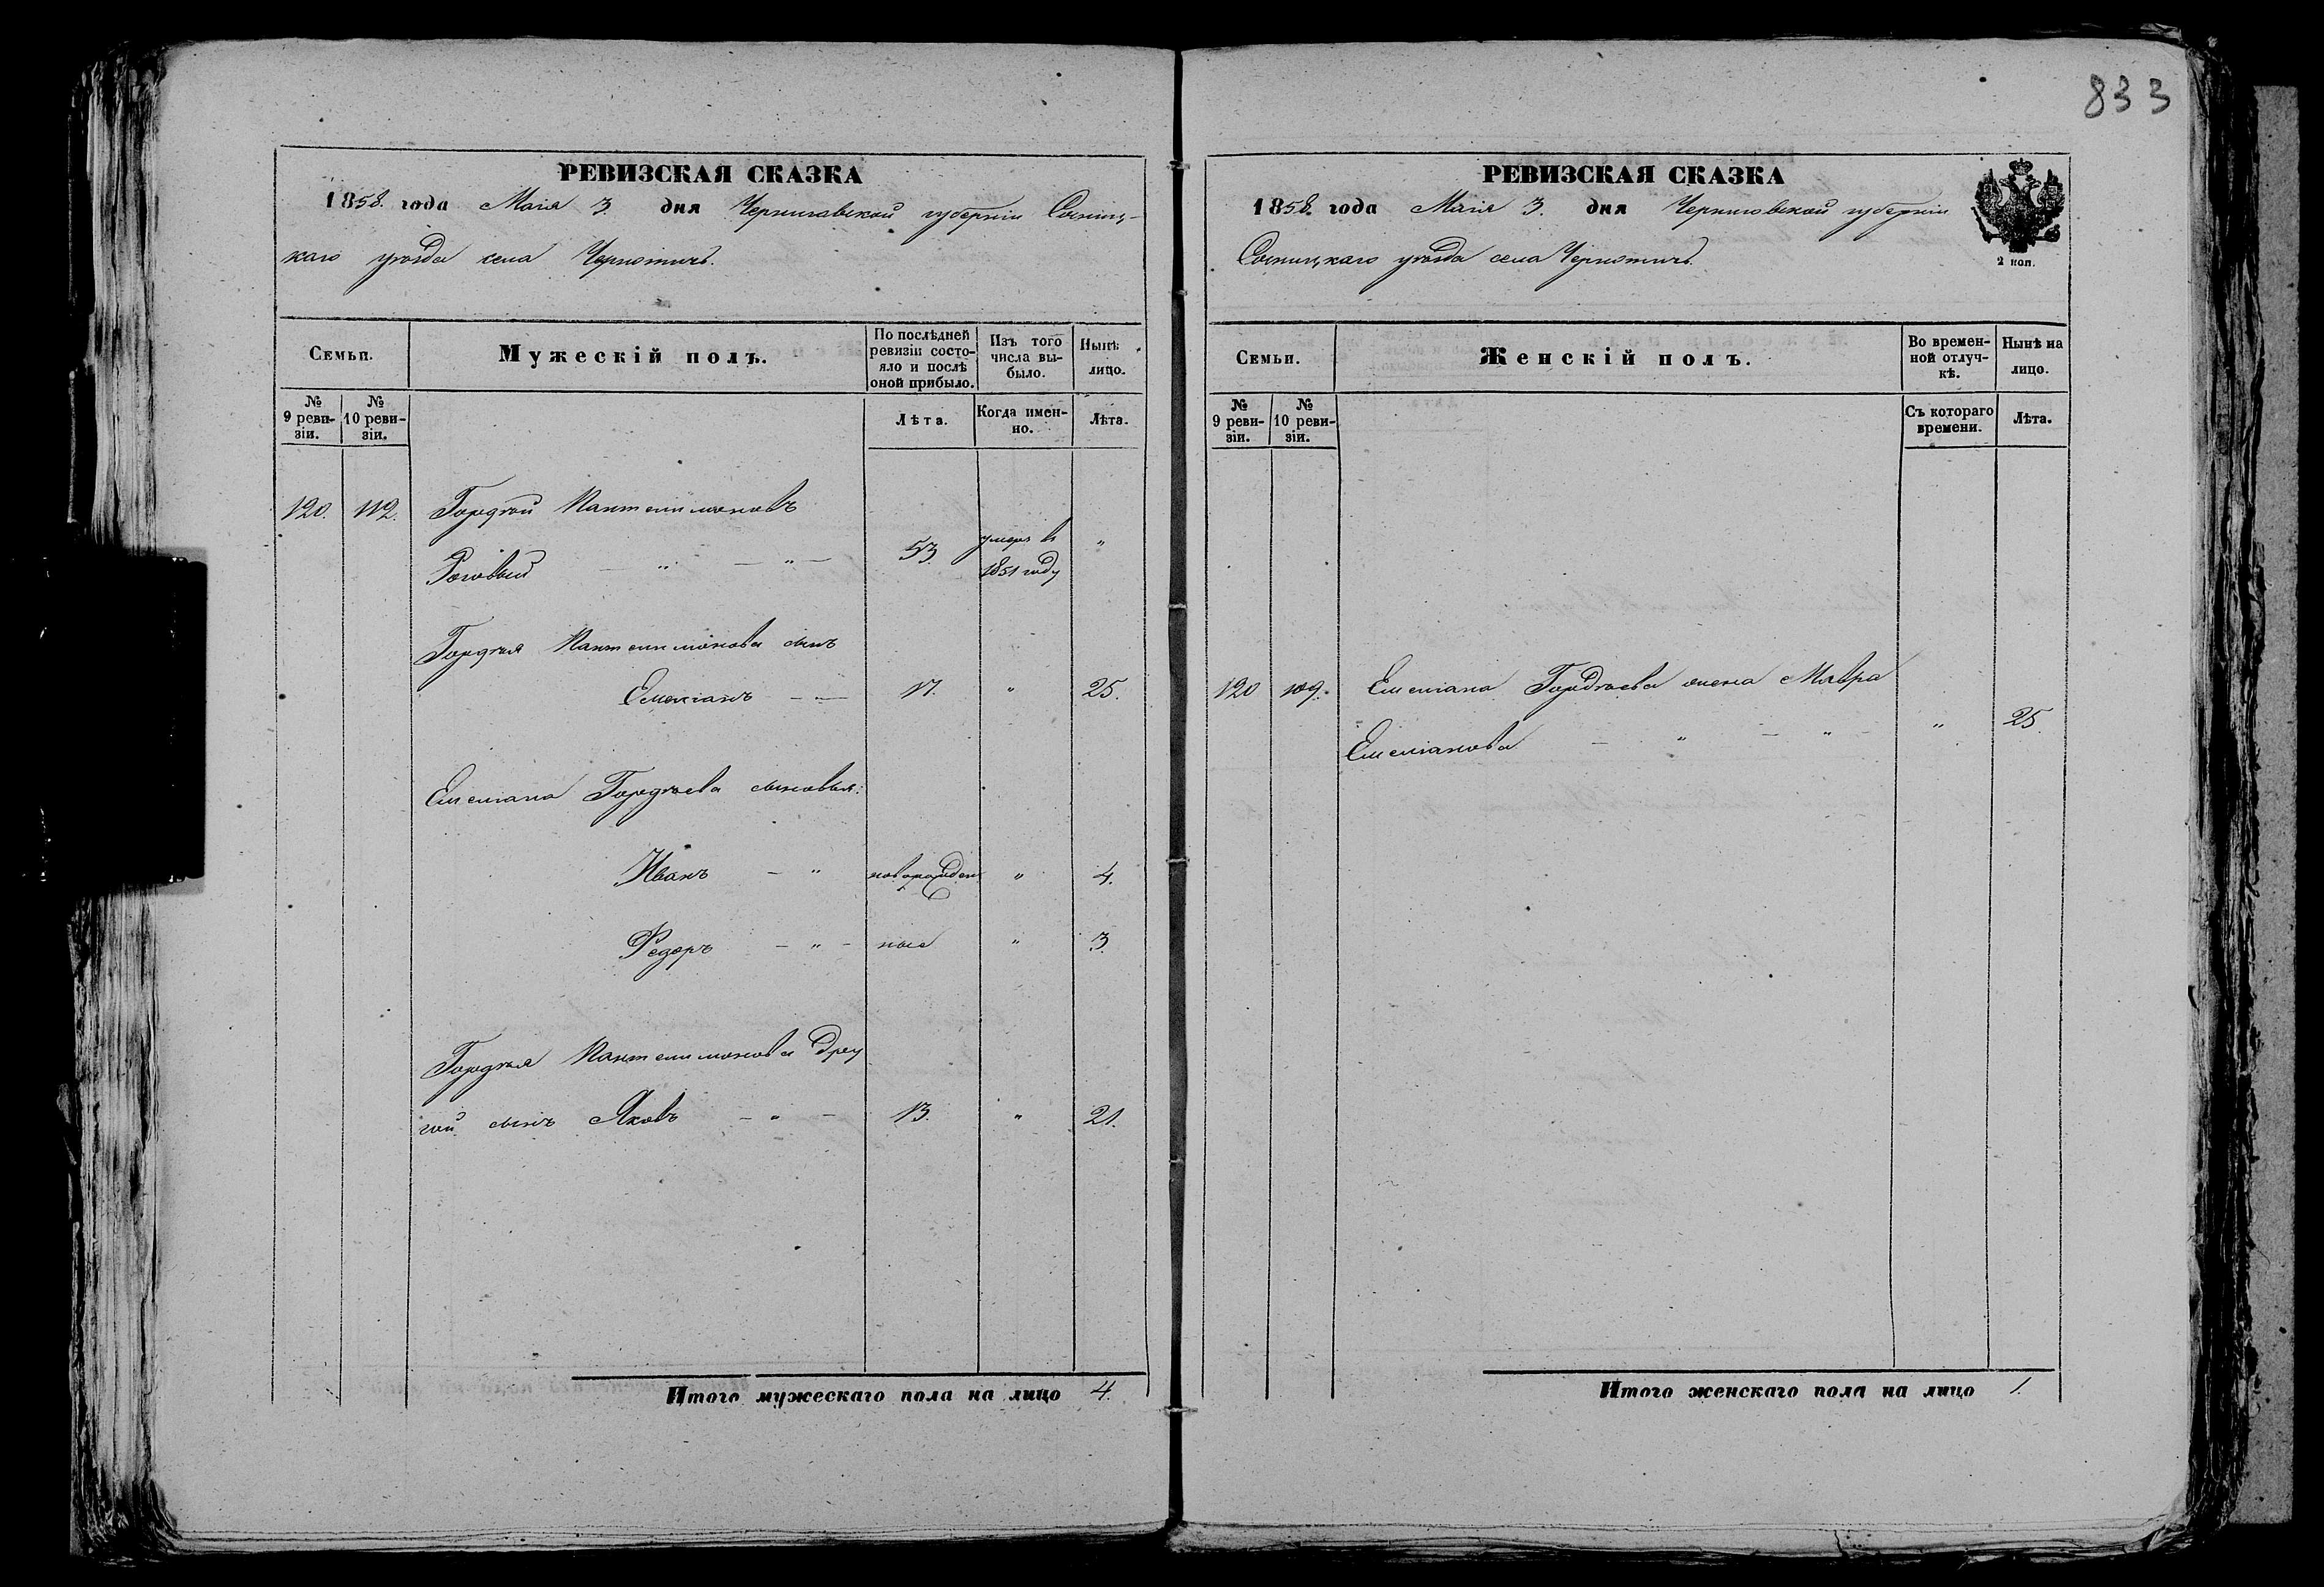 833
РЕВИЗСКАЯ СКАЗКА
1858. года Маія 3. дня Черниговской губерніи Сосниц-
каго уѣзда села Чернотичъ.
Семьи.
Мужескій полъ.
По послѣдней ревизіи состо-
яло и послѣ оной прибыло.
Изъ того числа вы-
было.
Нынѣ лицо.
№ 9 реви-
зіи.
№ 10 реви-
зіи.
Лѣта.
Когда имен-
но.
Лѣта.
120. 112. Гордѣй Пантелимоновъ
Роговый — " — " — 53. умеръ въ 1851 году "
Гордѣя Пантелимонова сынъ
Емеліанъ — — 17. " 25.
Емеліана Гордѣева сыновья:
Иванъ — " новорожден " 4.
Федоръ — " — ные " 3.
Гордѣя Пантелимонова дру
гой сынъ Яковъ — " — 13. " 21.
Итого мужескаго пола на лицо 4.
РЕВИЗСКАЯ СКАЗКА
1858. года Маія 3. дня Черниговской губерніи
Сосницкаго уѣзда села Чернотичъ.
2 коп.
Семьи.
Женскій полъ.
Во времен-
ной отлуч-
кѣ.
Нынѣ на лицо.
№ 9 реви-
зіи.
№ 10 реви-
зіи.
Съ котораго времени.
Лѣта.
120 109. Емеліана Гордѣева жена Мавра
Емеліанова — " — " — " 25.
Итого женскаго пола на лицо 1.